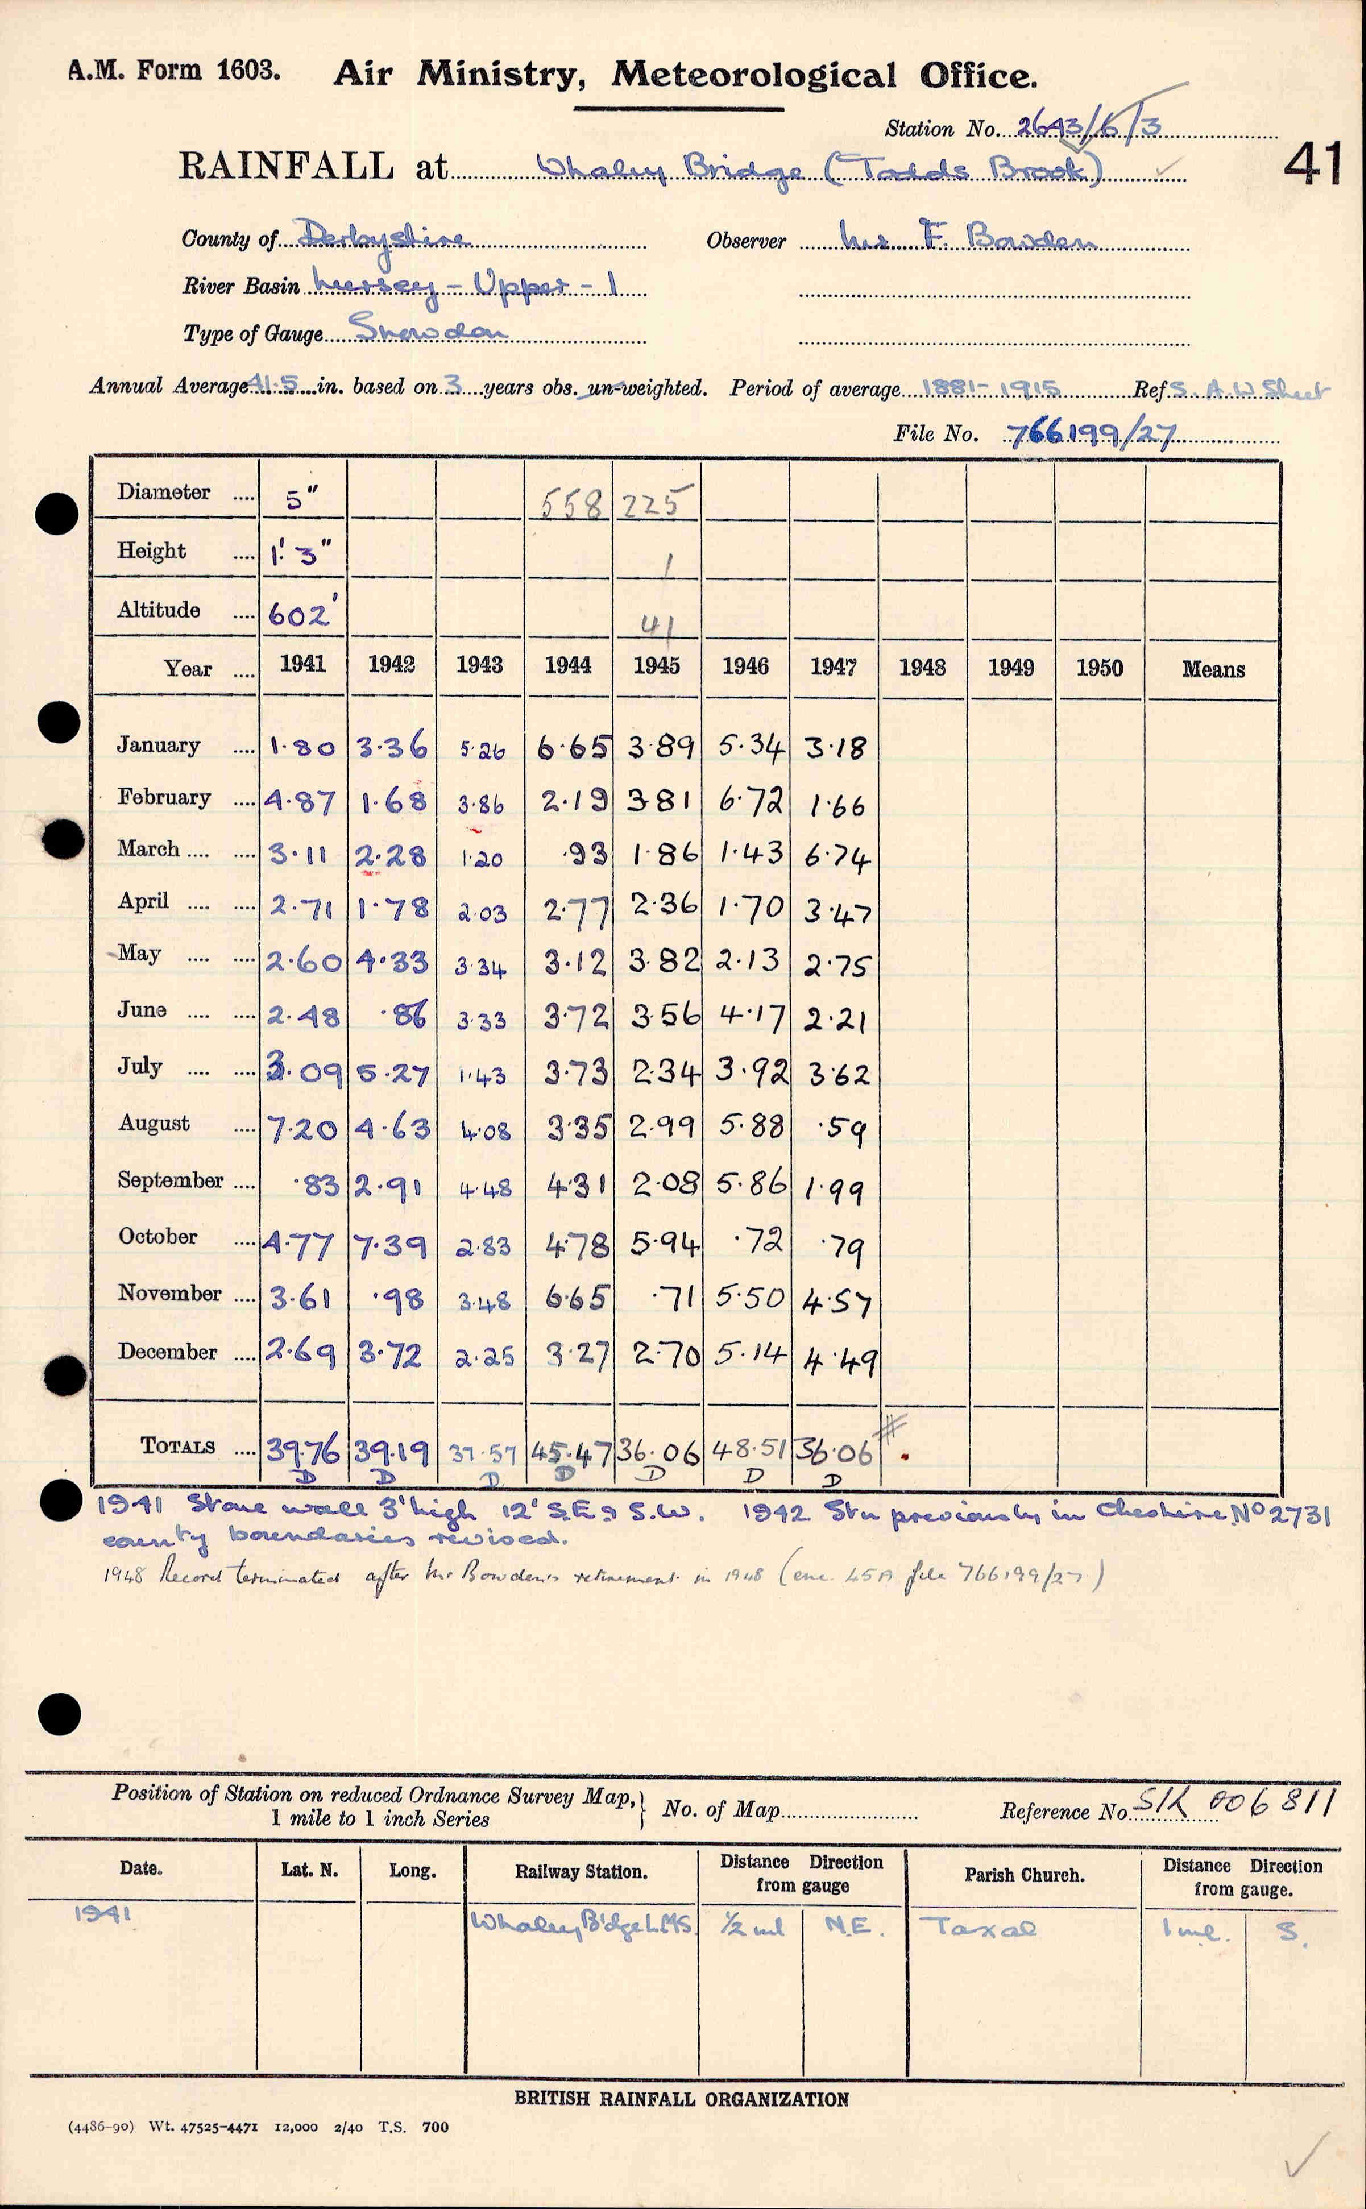 A.M. Form 1603. Air Ministry, Meteorological Office.
Station No. 2643/6/3
41
RAINFALL at Whaley Bridge (Todds Brook)
County of Derbyshire Observer Mr F. Bowden
River Basin Mersey - Upper - 1
Type of Gauge Snowdon
Annual Average 41.5 in. based on 3 years obs. un-weighted. Period of average 1881-1915 Ref S.A.W Sheet
File No. 766199/27
Diameter .... 5" 558 225
Height .... 1' 3" 1
Altitude .... 602' 41
Year .... 1941 1942 1943 1944 1945 1946 1947 1948 1949 1950 Means
January .... 1.80 3.36 5.26 6.65 3.89 5.34 3.18
February .... 4.87 1.68 3.86 2.19 3.81 6.72 1.66
March .... .... 3.11 2.28 1.20 .93 1.86 1.43 6.74
April .... .... 2.71 1.78 2.03 2.77 2.36 1.70 3.47
May .... .... 2.60 4.33 3.34 3.12 3.82 2.13 2.75
June .... .... 2.48 .86 3.33 3.72 3.56 4.17 2.21
July .... .... 3.09 5.27 1.43 3.73 2.34 3.92 3.62
August .... 7.20 4.63 4.08 3.35 2.99 5.88 .59
September .... .83 2.91 4.48 4.31 2.08 5.86 1.99
October .... 4.77 7.39 2.83 4.78 5.94 .72 .79
November .... 3.61 .98 3.48 6.65 .71 5.50 4.57
December .... 2.69 3.72 2.25 3.27 2.70 5.14 4.49
TOTALS .... 39.76 39.19 37.57 45.47 36.06 48.51 36.06 #
D D D D D D D
1941 Stone wall 3' high 12' S.E & S.W. 1942 Stn previously in Cheshire, No 2731
county boundaries revised.
1948 Record terminated after Mr Bowden's retirement in 1948 (enc. 45A file 766199/27)
Position of Station on reduced Ordnance Survey Map, } No. of Map Reference No. SK 006811
1 mile to 1 inch Series
Date. Lat. N. Long. Railway Station. Distance Direction from gauge Parish Church. Distance Direction from gauge.
1941 Whaley B'dge L.M.S. 1/2 ml N.E. Taxal 1 ml. S.
BRITISH RAINFALL ORGANIZATION
(4486-90) Wt. 47525-4471 12,000 2/40 T.S. 700